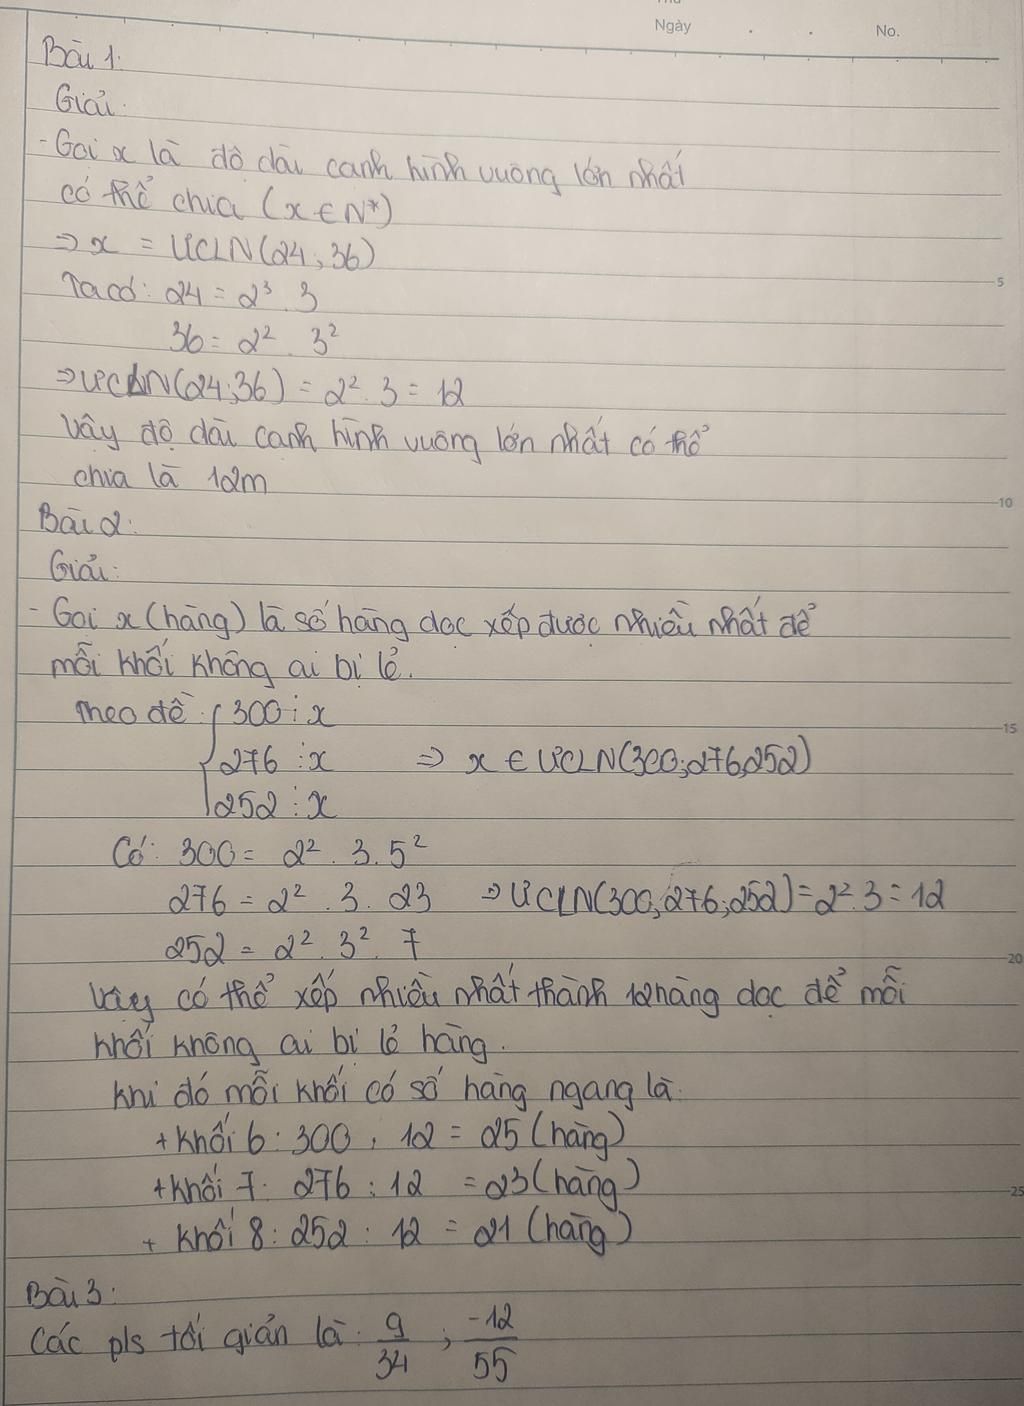 Thứ
Ngày . . No.
Bài 1:
Giải:
- Gọi x là độ dài cạnh hình vuông lớn nhất
có thể chia (x ∈ N*)
⇒ x = ƯCLN(24; 36)
Ta có: 24 = 2³ . 3
36 = 2² . 3²
⇒ ƯCLN(24;36) = 2² . 3 = 12
Vậy độ dài cạnh hình vuông lớn nhất có thể
chia là 12m
Bài 2:
Giải:
- Gọi x (hàng) là số hàng dọc xếp được nhiều nhất để
mỗi khối không ai bị lẻ.
Theo đề { 300 ⋮ x
276 ⋮ x ⇒ x ∈ ƯCLN(300;276;252)
252 ⋮ x
Có: 300 = 2² . 3 . 5²
276 = 2² . 3 . 23 ⇒ ƯCLN(300;276;252) = 2² . 3 = 12
252 = 2² . 3² . 7
Vậy có thể xếp nhiều nhất thành 12 hàng dọc để mỗi
khối không ai bị lẻ hàng.
Khi đó mỗi khối có số hàng ngang là:
+ Khối 6 : 300 : 12 = 25 (hàng)
+ Khối 7 : 276 : 12 = 23 (hàng)
+ Khối 8 : 252 : 12 = 21 (hàng)
Bài 3:
Các pls tối giản là: 9/34 ; -12/55
5
10
15
20
25